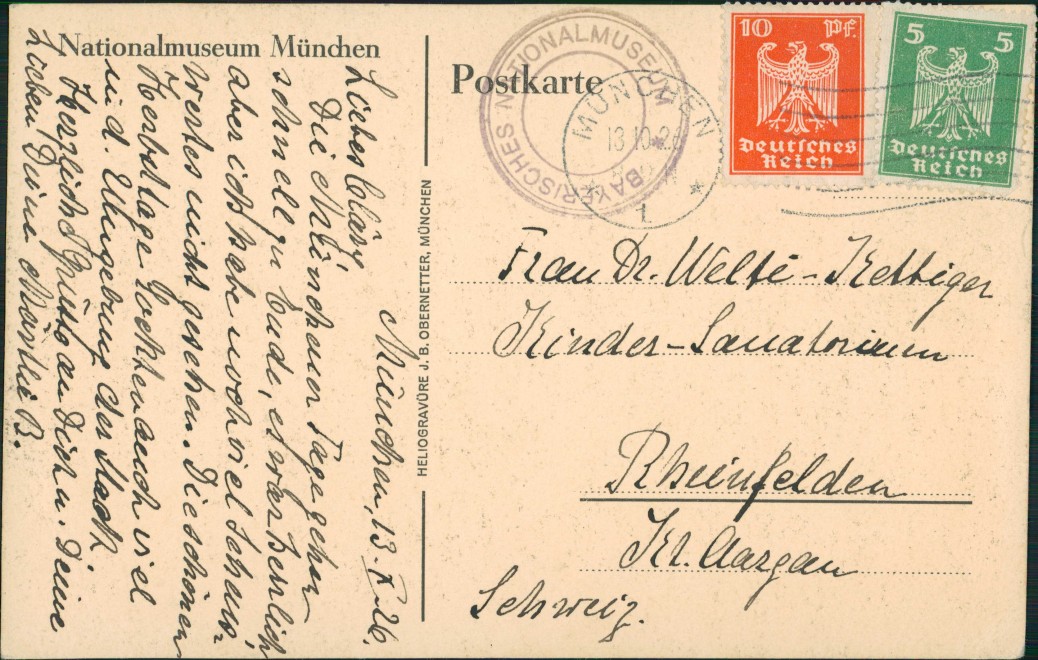 Nationalmuseum München
Postkarte
BAYERISCHES NATIONALMUSEUM
MÜNCHEN
13.10.26
1.
10 Pf.
Deutsches
Reich
5 5
Deutsches
Reich
HELIOGRAVÜRE J. B. OBERNETTER, MÜNCHEN
München, 13. X. 26.
Liebes Cläry,
Die Münchener Tage gehen
schnell zu Ende, es war herrlich
aber ich habe noch viel Sehens-
wertes nicht gesehen. Die schönen
Herbsttage lockten auch viel
in d. Umgebung der Stadt
Herzlich Grüsse an Dich u. Deine
Lieben Deine B.
Frau Dr. Welti-Kettiger
Kinder-Sanatorium
Rheinfelden
Kt. Aargau
Schweiz.